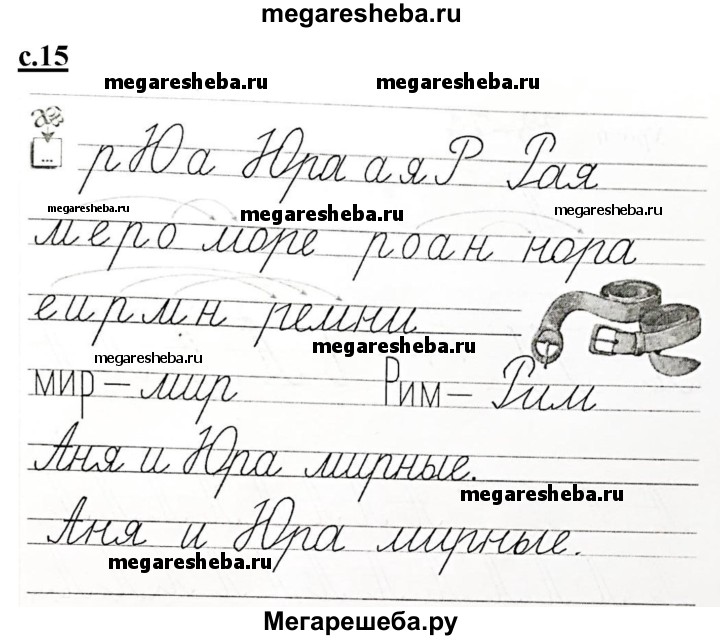 megaresheba.ru
с.15
megaresheba.ru megaresheba.ru
аз
...
рЮа Юра аяР Рая
megaresheba.ru megaresheba.ru megaresheba.ru
меро море роан нора
еирмн ремни
megaresheba.ru
megaresheba.ru
мир – мир Рим – Рим
Аня и Юра мирные.
megaresheba.ru
Аня и Юра мирные.
megaresheba.ru
Мегарешеба.ру